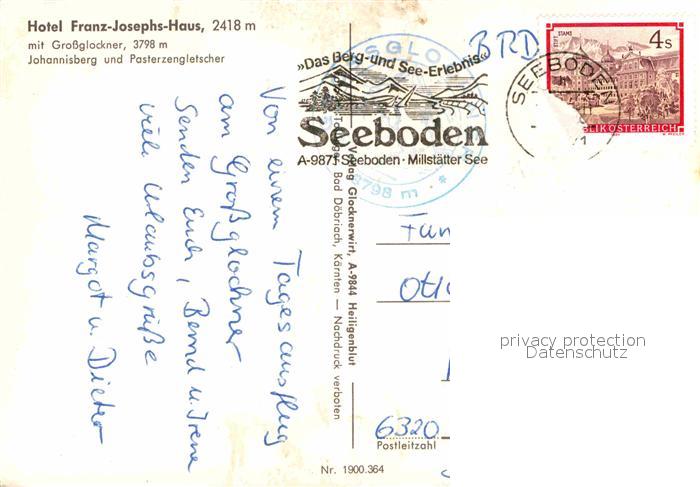 Hotel Franz-Josephs-Haus, 2418 m
mit Großglockner, 3798 m
Johannisberg und Pasterzengletscher
Von einem Tagesausflug
am Großglockner
senden Euch, Bernd u. Irene
viele Urlaubsgrüße
Margot u. Dieter
»Das Berg-und See-Erlebnis«
Seeboden
A-9871 Seeboden · Millstätter See
SGLO
3798 m
Verlag Glocknerwirt, A-9844 Heiligenblut
Bad Döbriach, Kärnten — Nachdruck verboten
BRD
SEEBODEN
STIFT STAMS
4 S
BLIK ÖSTERREICH
Fam
Otto
6320
Postleitzahl
privacy protection
Datenschutz
Nr. 1900.364